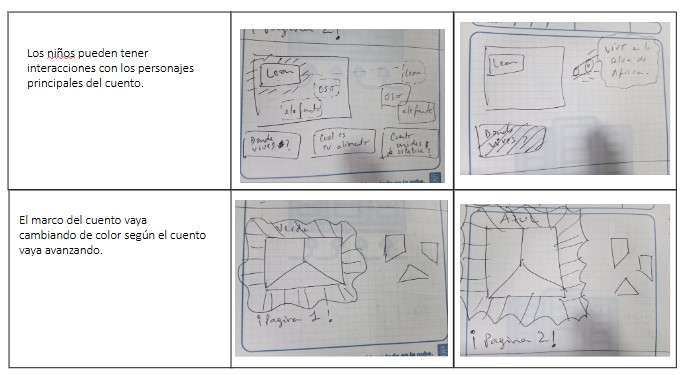 Los niños pueden tener
interacciones con los personajes
principales del cuento.
¡Pagina 2!
Leon
Leon
Oso
Oso
elefante
elefante
Donde
vives?
Cual es
tu alimento
Cuanto
mides
Leon
Vivo en la
selva de
Africa.
Donde
vives
El marco del cuento vaya
cambiando de color según el cuento
vaya avanzando.
Verde
¡Pagina 1!
Azul
¡Pagina 2!